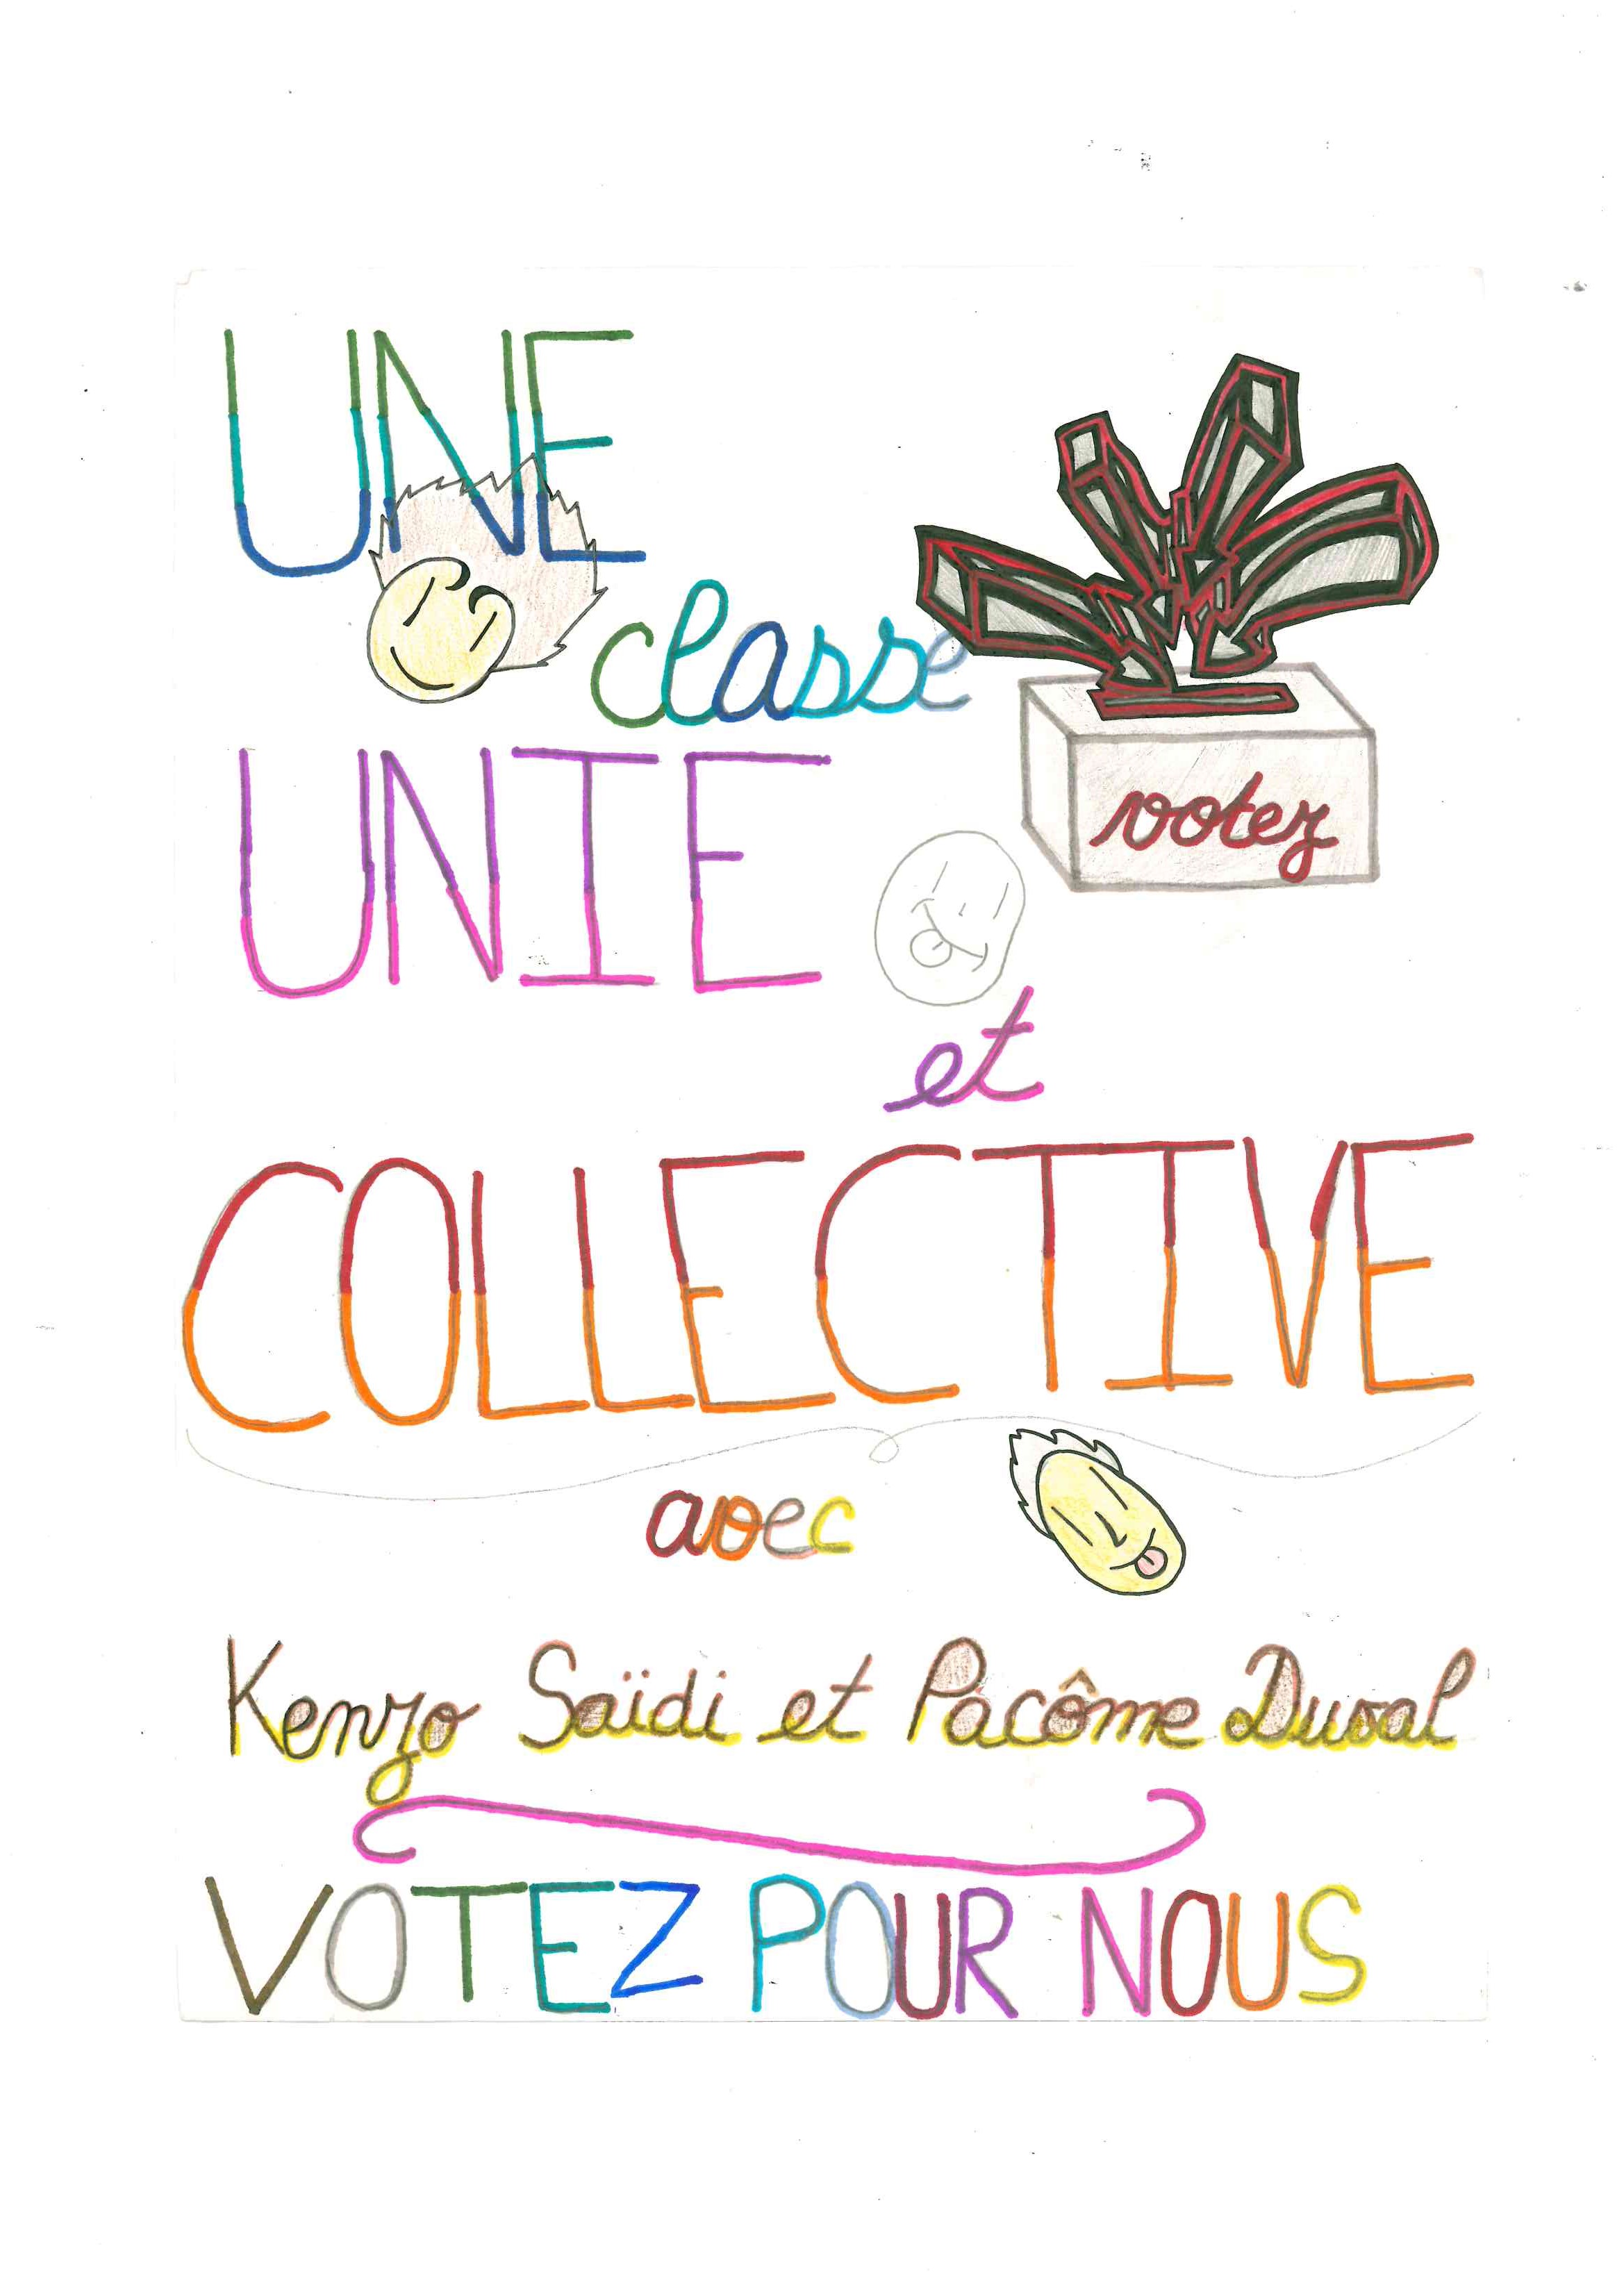 UNE
classe
votez
UNIE
et
COLLECTIVE
avec
Kenzo Saïdi et Pacôme Duval
VOTEZ POUR NOUS